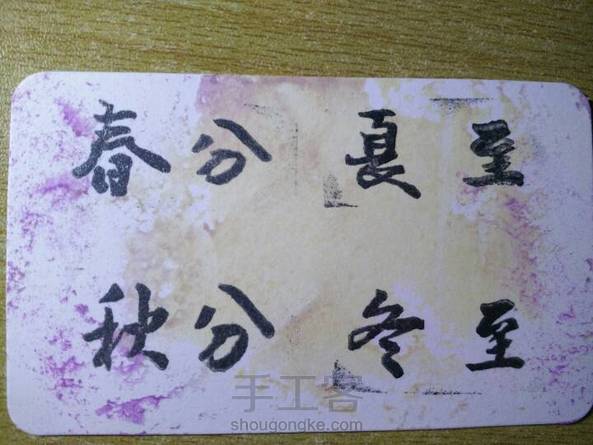 春分 夏至
秋分 冬至
手工客
shougongke.com